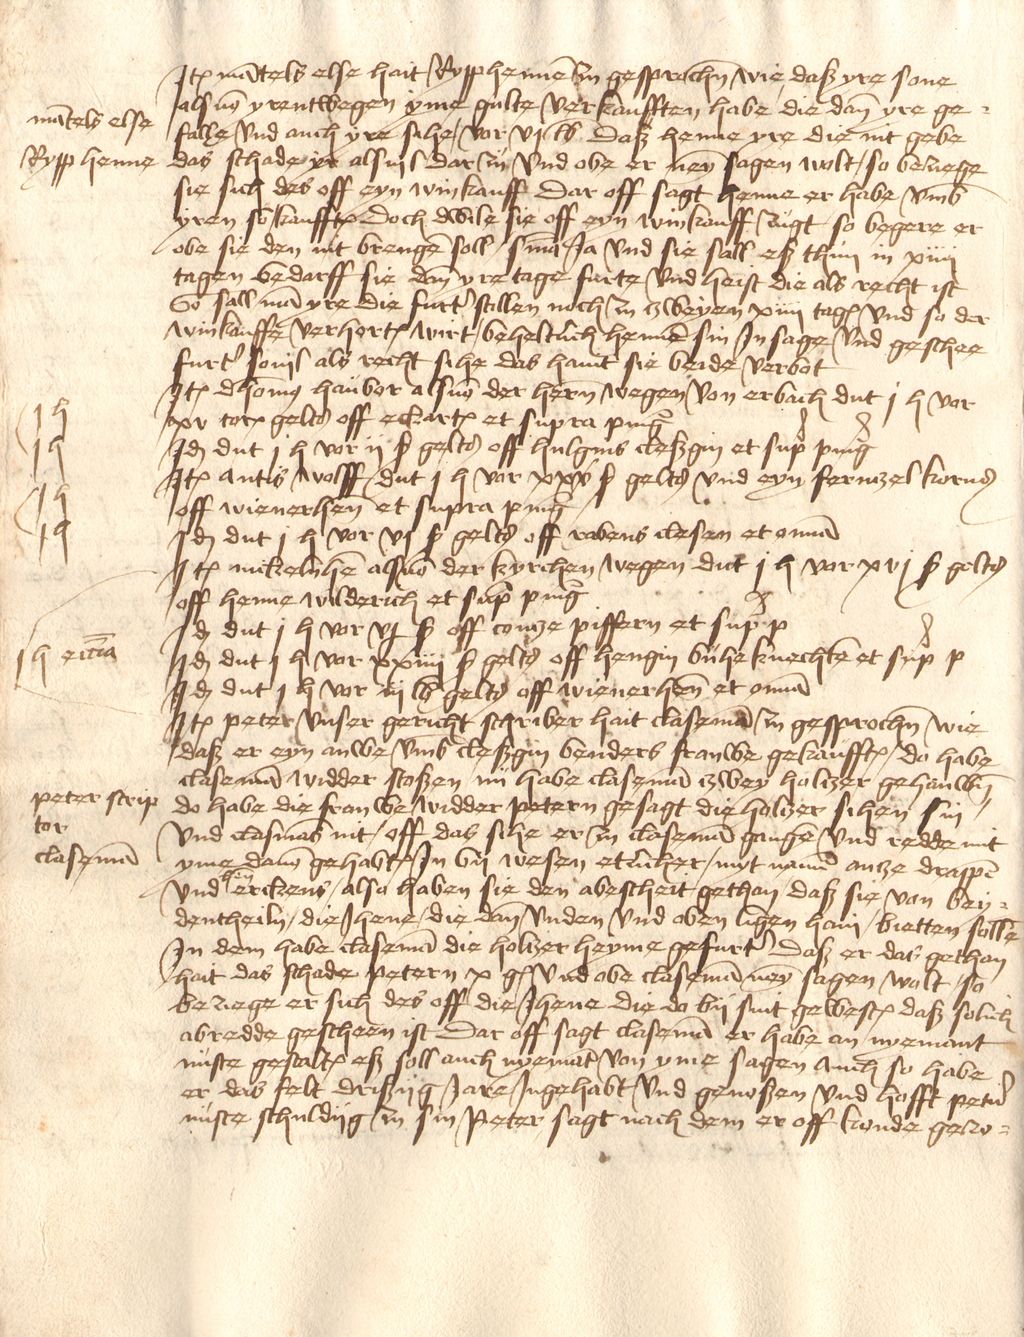 Item mātels else hait Rypp hennē zu gesprochē wie, daß yre sone
als vō yrentwegen yme gulte verkaufften habe die dan yre ge=
mātels else
falle vnd auch yre sihe / vor vj lb Daß henne yre die nit gebe
Rypp henne
das schade yr alsuil dar zu vnd obe er neyn sagen wolt / so beziehe
sie sich des off eyn winkauff Dar off sagt henne er habe vmb
yren son kaufft Doch dwile sie off eyn winkauff zugt so begere er
obe sie den nit brenge soll / Ja vnd sie sall eß thun in xiiij
tagen bedarff sie dan yre tage furte vnd heist die als recht ist
So sall mā yre die furt stellen noch zu zweyen xiiij tagē vnd so der
winkauffe verhort wirt / beheltlich hennē sin Insage vnd geschee
furt souil als recht sihe das hant sie beide verbot
Itē dhoms haubor als vō der hern wegen von erbach dut j h vor
j h
xv gelts off eckarts et supra pmg
j h
Idē dut j h vor ij ß gelts off hulgins cleßgin et sup pmg
Itē antis wolff dut j h vor xxv ß gelts vnd eyn fernzel korns
j h
off wienerhen et supra pmg
j h
Idē dut j h vor vj ß gelts off rabens clesen et omīa
Itē nickelnhē als vō der kyrchen wegen dut j h vor xvj ß gelts
off henne wilderich et sup pmg
Idē dut j h vor vj ß off contze piffern et sup p
j h ecctia
Idē dut j h vor xxiiij ß gelts off hengin buhe knechte et sup p
Idē dut j h vor iij lb gelts off wienerhen et omīa
Itē peter vnser gericht schriber hait clasemā zu gesprochē wie
daß er eyn auwe vmb cleßgin benders frauwe gekaufft / do habe
clasemā widder stoßen nu habe clasemā zwey holtzer gehauwē
peter scrip
do habe die frauwe widder petern gesagt die holtzer sihen sin
tor
vnd clasmās nit / off das sihe er zu clasemā gangē vnd redde mit
clasemā
yme dauō gehabt / In by wesen etlicher / myt namē antze drappē
vnd erckens / also haben sie den abescheit gethan daß sie von bey=
dentheiln / die Jhene / die dan vnden vnd oben ligen han / bietten sollē
In dem habe clasemā die holtzer heyme gefurt Daß er das gethan
hait das schade petern x g vnd obe clasemā ney sagen wolt / so
beziege er sich des off die Jhene die do by sint gewest daß solich
abredde gescheen ist Dar off sagt clasemā er habe an nyemant
nuste gestalt eß soll auch nyemā von yme sagen auch so habe
er das felt drißijg Jare Ingehabt vnd genoßen vnd hofft petern
nuste schuldijg zu sin Peter sagt nach dem er off konde gezo=